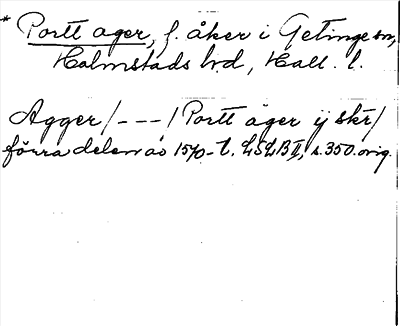 * Portt ager, f. åker i Getinge sn,
Halmstads hd, Hall. l.
Agger /---/ Portt ager ij skr/
förra delen av 1570-t. LSLB II, s. 350. orig.